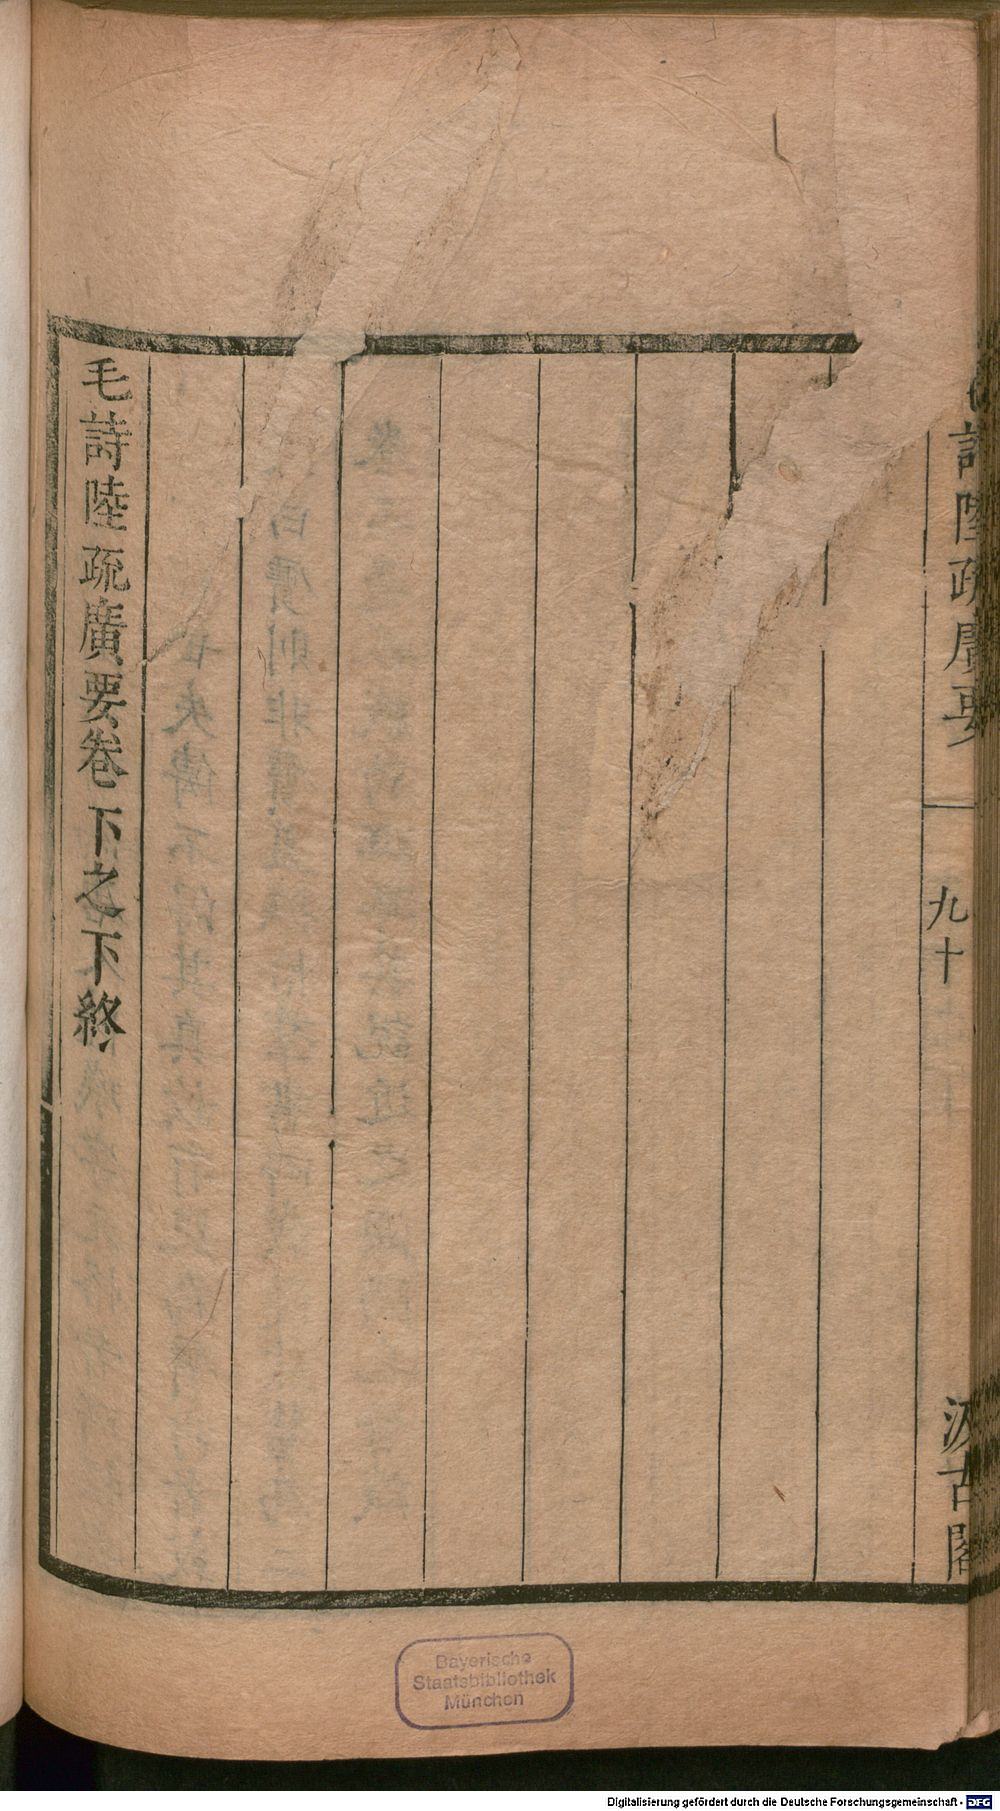 詩陸疏廣要
九十
汲古閣
毛詩陸疏廣要卷下之下終
Bayerische
Staatsbibliothek
München
Digitalisierung gefördert durch die Deutsche Forschungsgemeinschaft - DFG